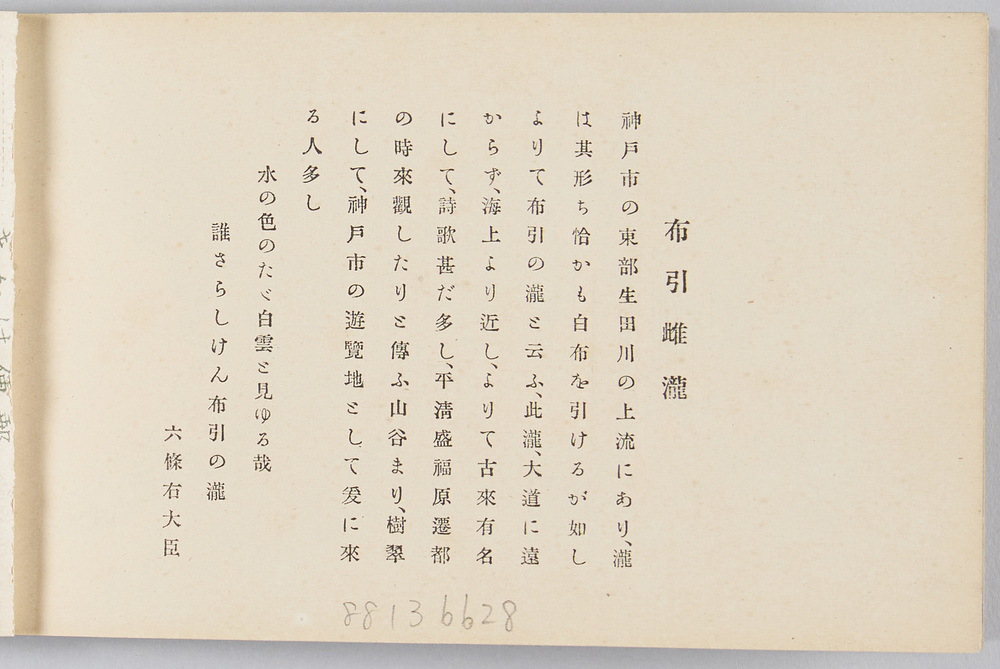 布引雌瀧
神戸市の東部生田川の上流にあり、瀧
は其形ち恰かも白布を引けるが如し
よりて布引の瀧と云ふ、此瀧、大道に遠
からず、海上より近し、よりて古來有名
にして、詩歌甚だ多し、平清盛福原遷都
の時來觀したりと傳ふ山谷まり、樹翠
にして、神戸市の遊覽地として爰に來
る人多し
水の色のたゞ白雲と見ゆる哉
誰さらしけん布引の瀧
六條右大臣
88136628